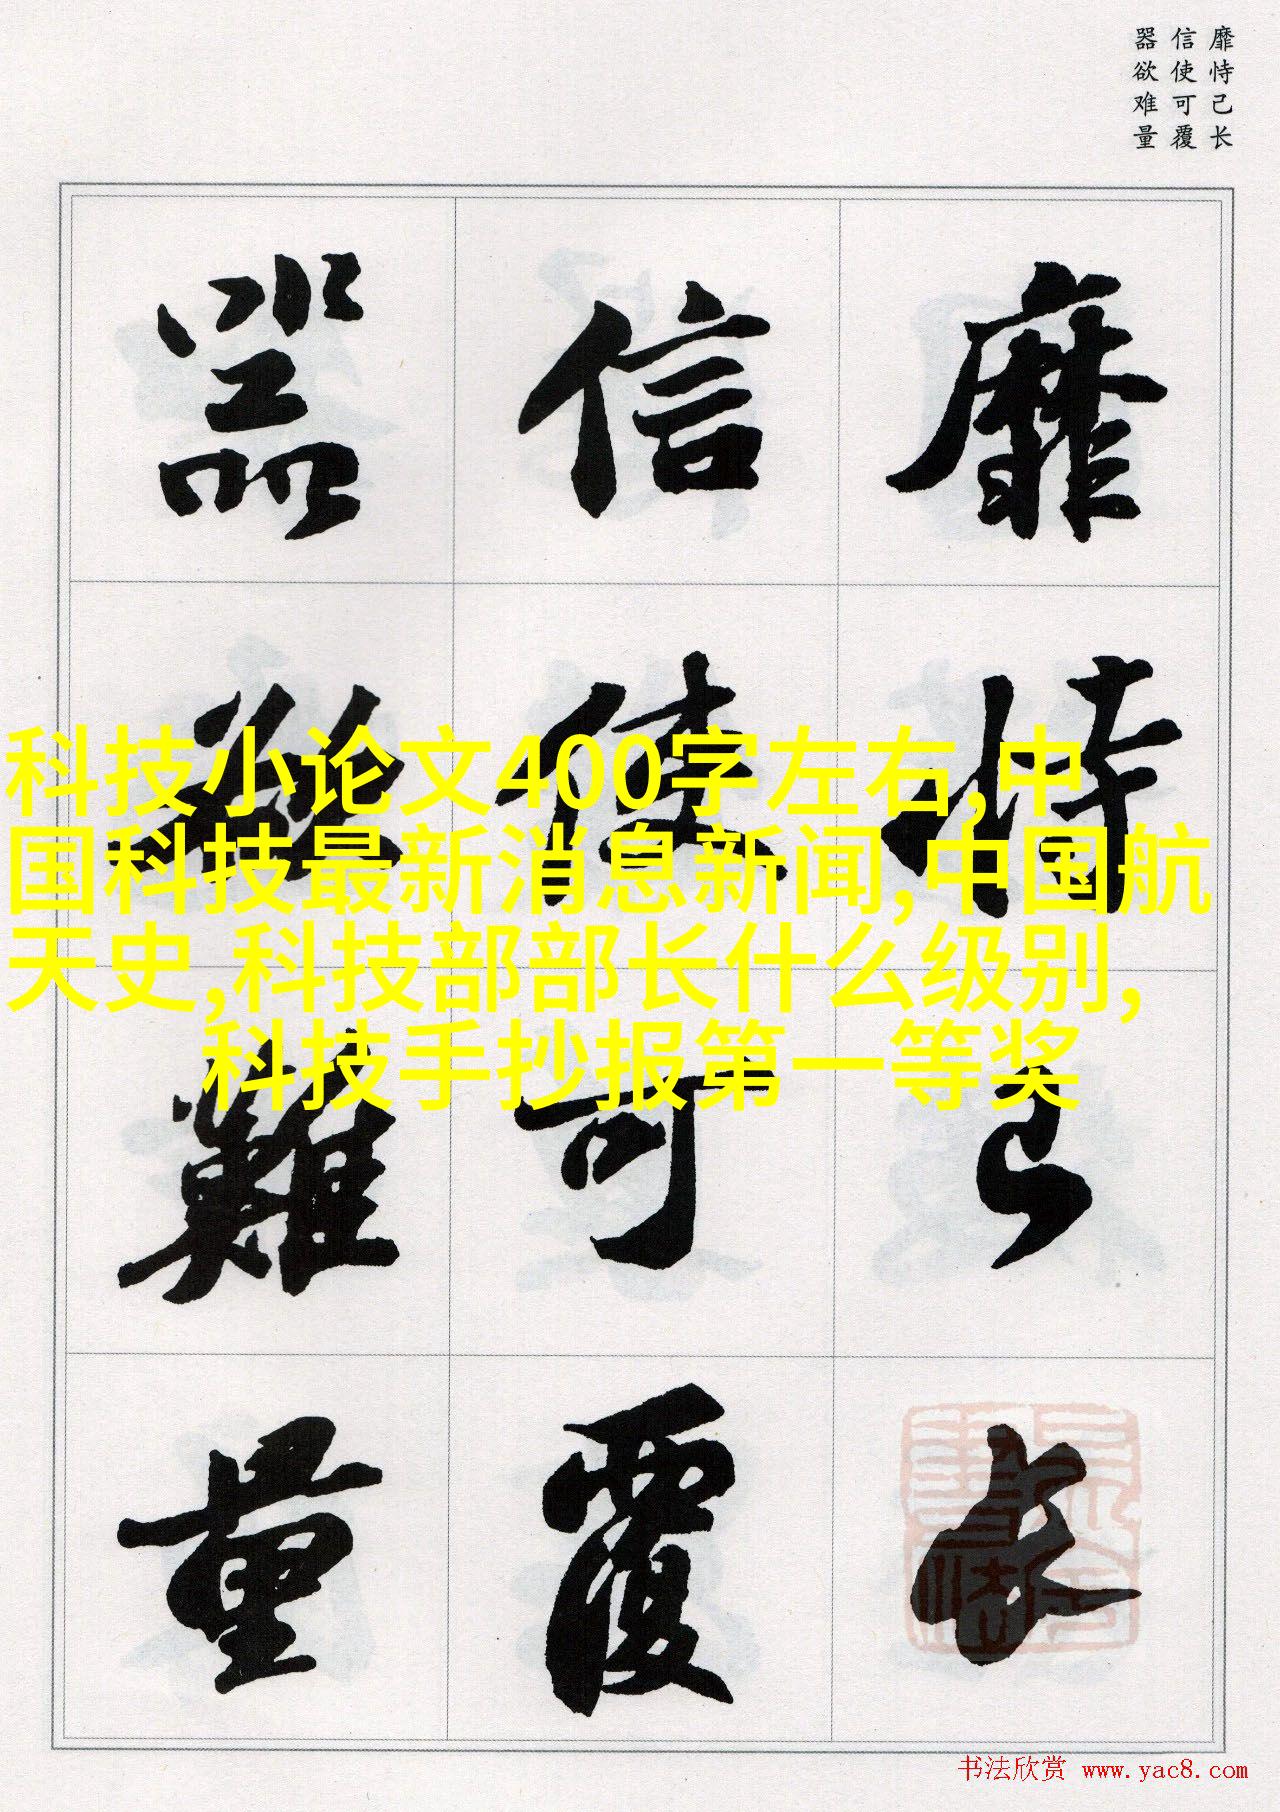 靡恃己长
信使可覆
器欲难量
靡恃己长
信使可覆
器欲難量
科技小论文400字左右,中
国科技最新消息新闻,中国航
天史,科技部部长什么级别,
科技手抄报第一等奖
书法欣赏 www.yac8.com